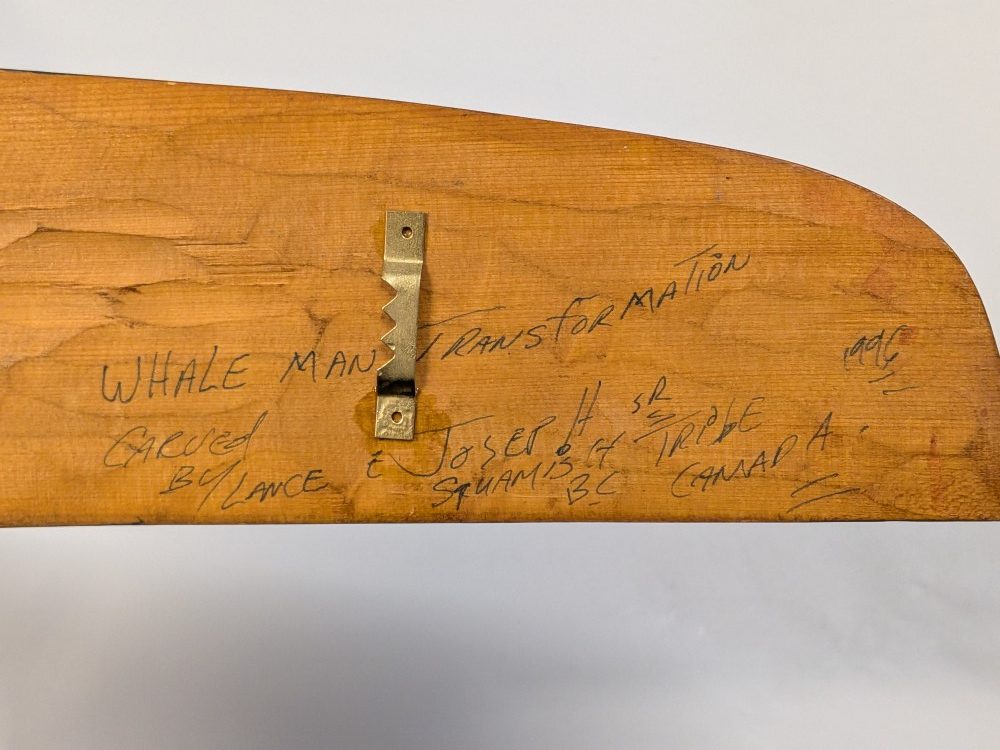 WHALE MAN TRANSFORMATION
1996
CARVED
BY LANCE & JOSEPH SR
SQUAMISH TRIBE
BC CANADA.